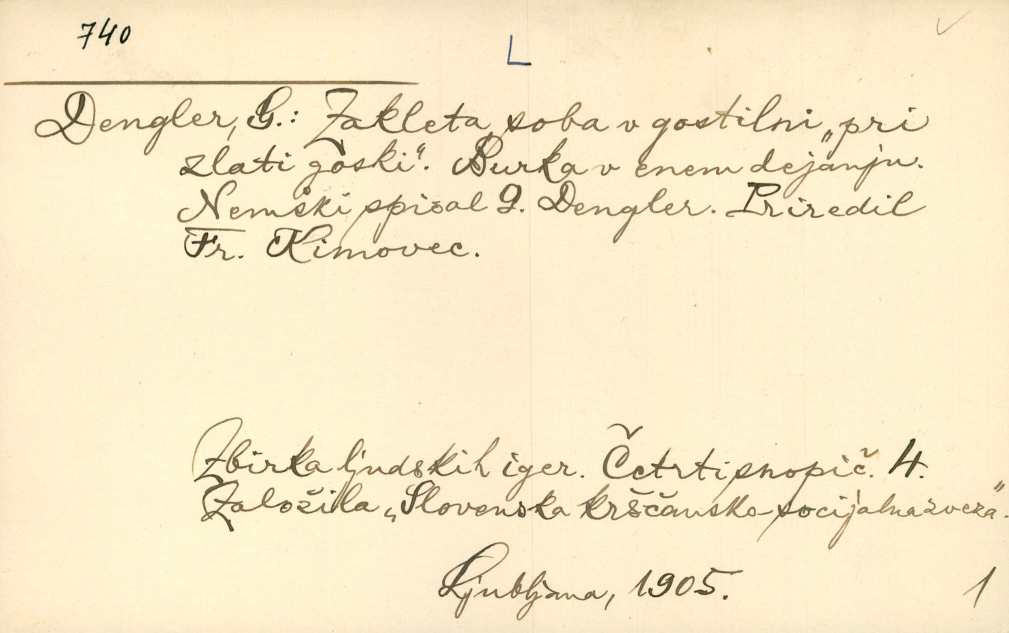 740
L
Dengler, G.: Zakleta soba v gostilni „pri
zlati goski“. Burka v enem dejanju.
Nemški spisal G. Dengler. Priredil
Fr. Kimovec.
Zbirka ljudskih iger. Četrti snopič. 4.
Založila „Slovenska krščansko-socijalna zveza“.
Ljubljana, 1905.
1